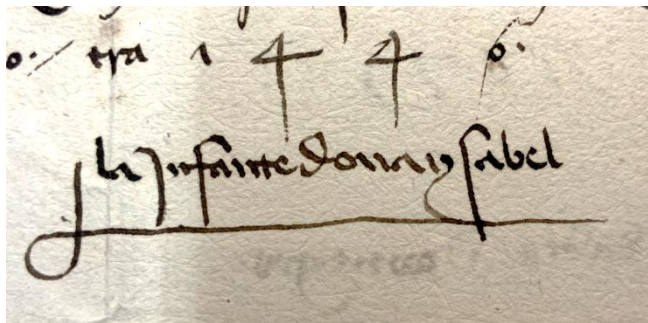 era 1 4 4 6.
la Infante doña ysabel